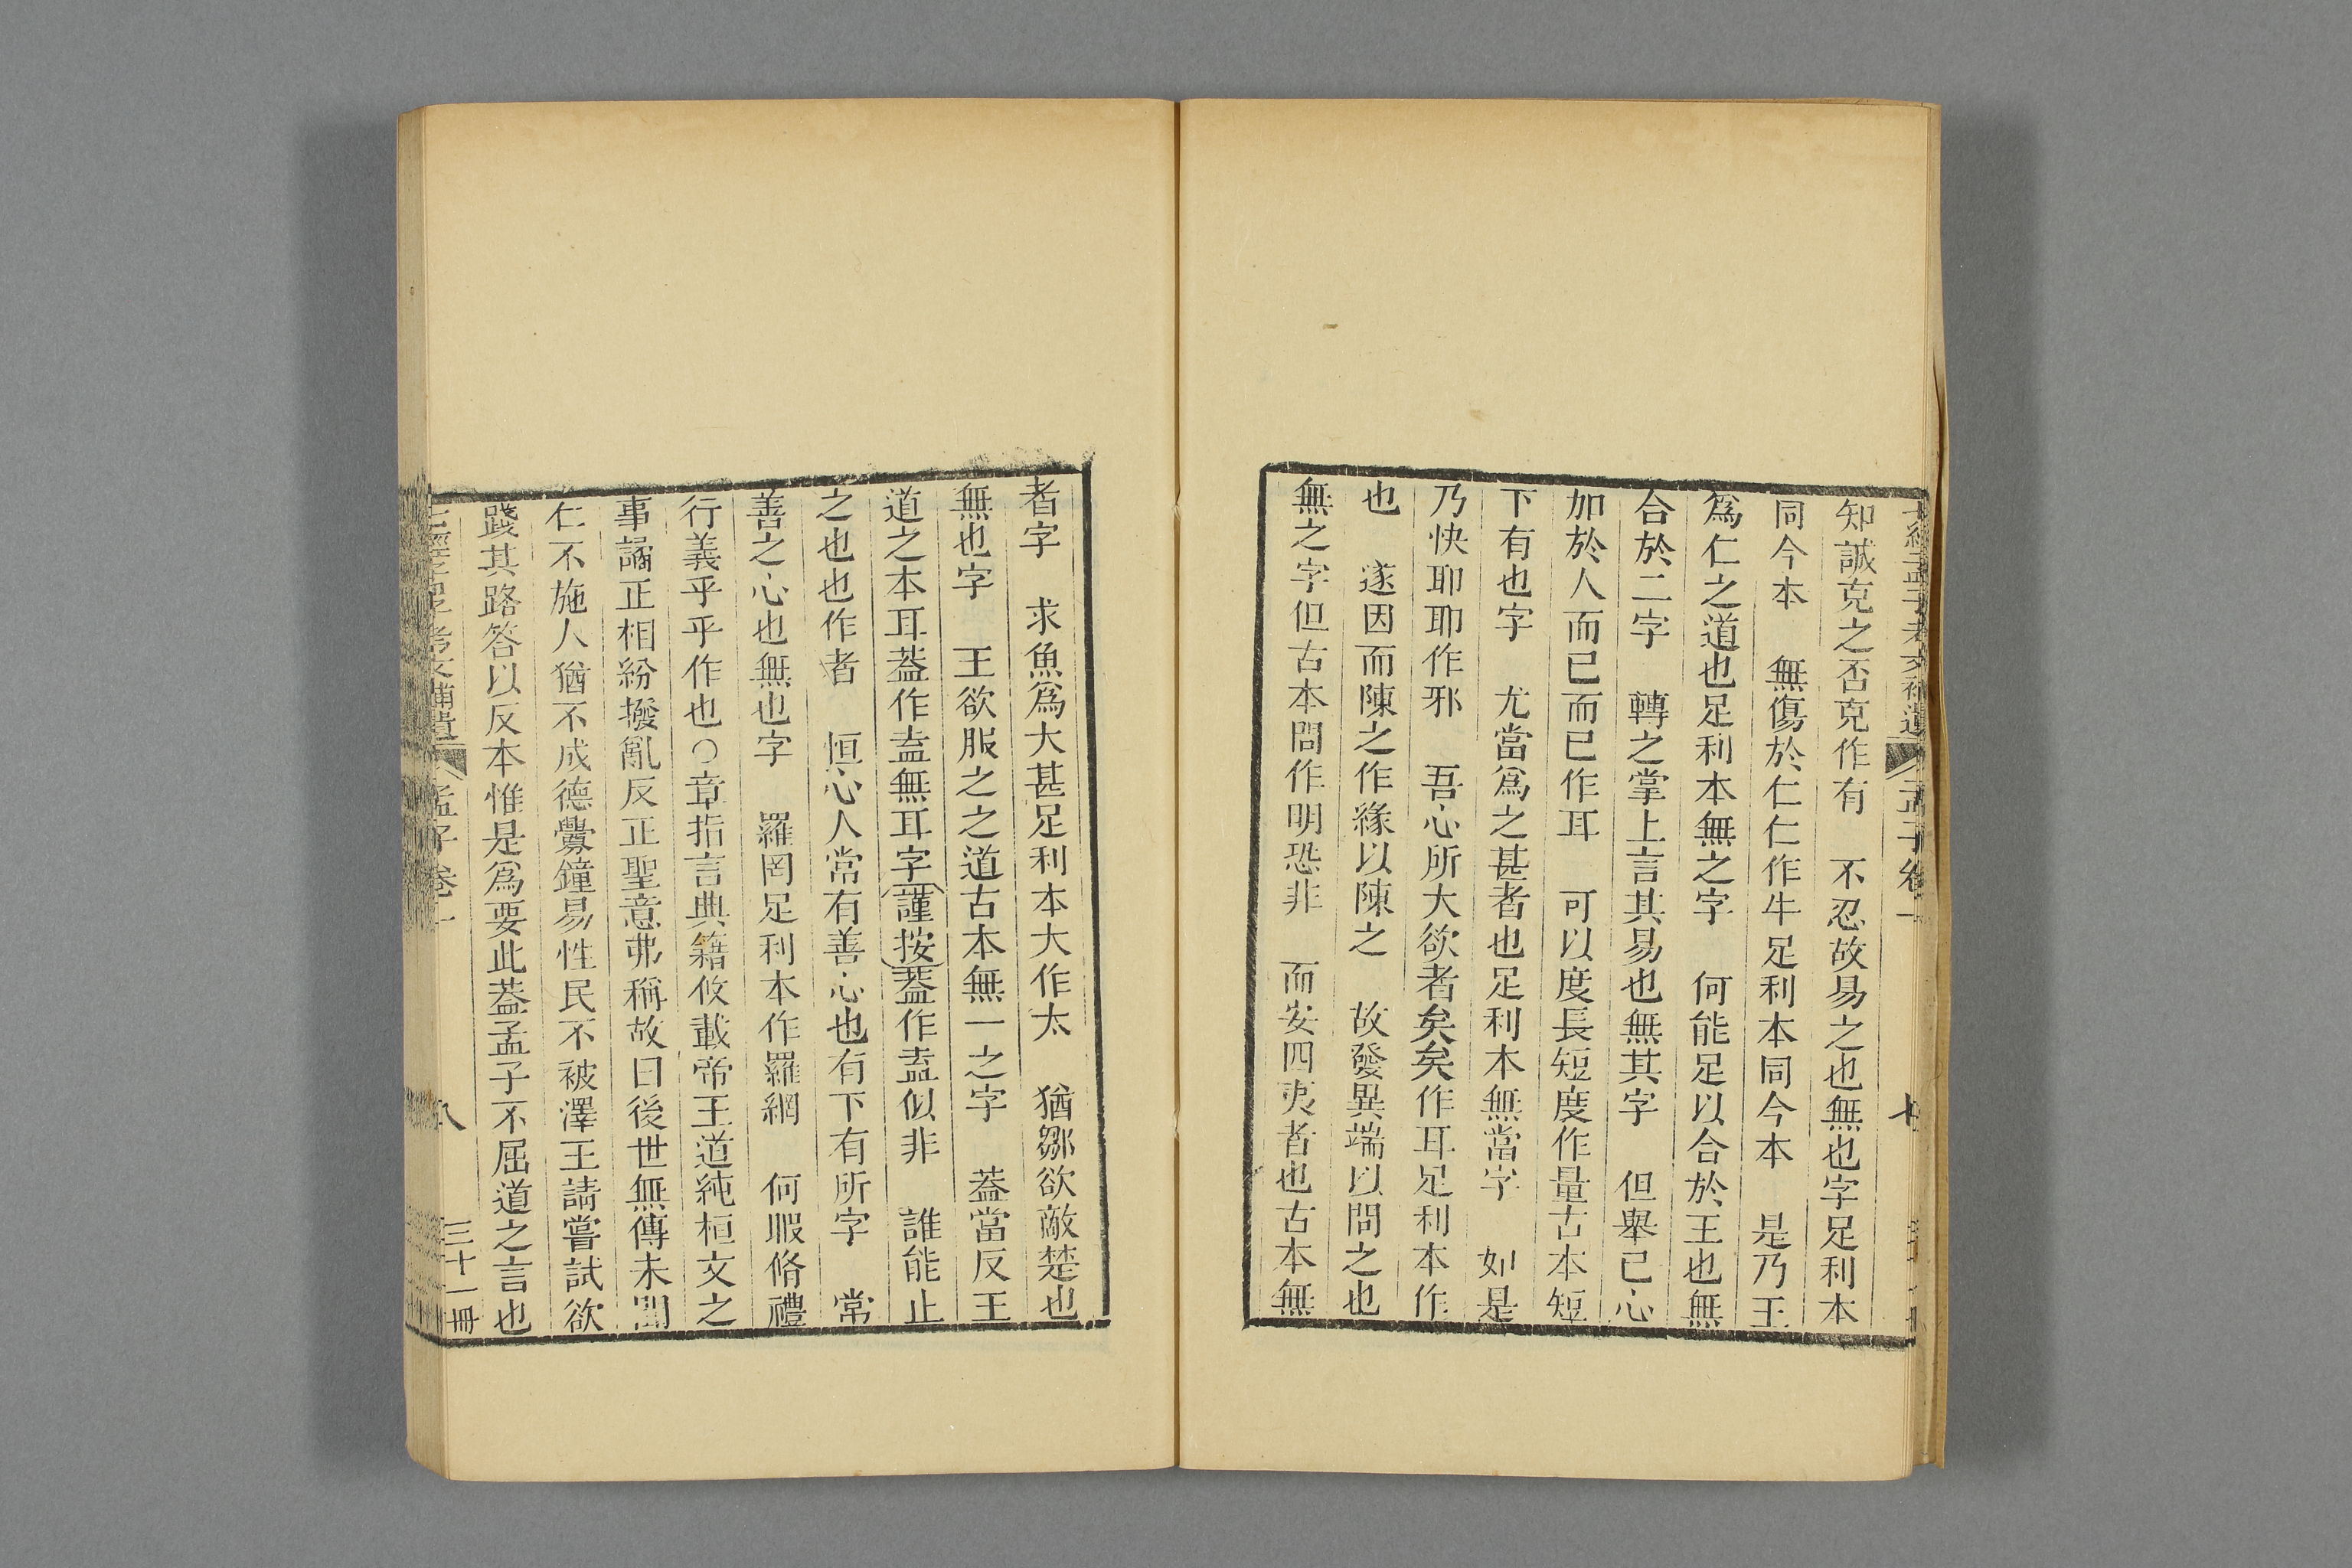 知誠克之否克作有　不忍故易之也無也字足利本
同今本　無傷於仁仁作牛足利本同今本　是乃王
爲仁之道也足利本無之字　何能足以合於王也無
合於二字　轉之掌上言其易也無其字　但舉已心
加於人而已而已作耳　可以度長短度作量古本短
下有也字　尤當爲之甚者也足利本無當字　如是
乃快耶耶作邪　吾心所大欲者矣矣作耳足利本作
也　遂因而陳之作緣以陳之　故發異端以問之也
無之字但古本問作明恐非　而安四夷者也古本無
者字　求魚爲大甚足利本大作太　猶鄒欲敵楚也
無也字　王欲服之之道古本無一之字　葢當反王
道之本耳葢作盍無耳字謹按葢作盍似非　誰能止
之也也作者　恒心人常有善心也有下有所字　常
善之心也無也字　羅罔足利本作羅網　何暇脩禮
行義乎乎作也○章指言典籍攸載帝王道純桓文之
事譎正相紛撥亂反正聖意弗稱故曰後世無傳未聞
仁不施人猶不成德釁鐘易性民不被澤王請嘗試欲
踐其路答以反本惟是爲要此葢孟子不屈道之言也
孟子卷一　八　三十一冊